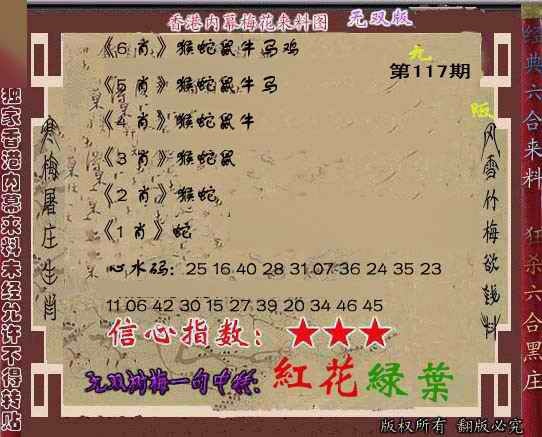 香港内幕梅花来料图 无双版
《6肖》猴蛇鼠牛马鸡
第117期
《5肖》猴蛇鼠牛马
《4肖》猴蛇鼠牛
《3肖》猴蛇鼠
《2肖》猴蛇
《1肖》蛇
心水码：25 16 40 28 31 07 36 24 35 23
11 06 42 30 15 27 39 20 34 46 45
信心指数：★★★
一句中特：紅花綠葉
独家香港内幕来料未经允许不得转贴
寒梅屠庄生肖
风雪竹梅欲钱料
经典六合来料 狂杀六合黑庄
版权所有 翻版必究